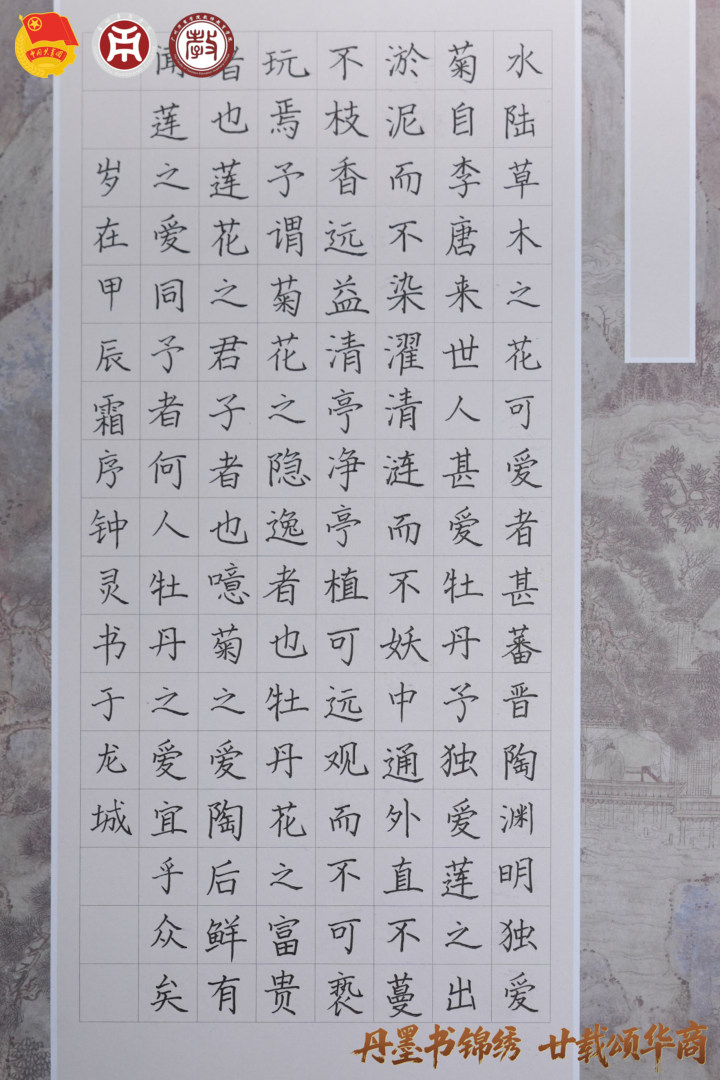 水陆草木之花可爱者甚蕃晋陶渊明独爱
菊自李唐来世人甚爱牡丹予独爱莲之出
淤泥而不染濯清涟而不妖中通外直不蔓
不枝香远益清亭净亭植可远观而不可亵
玩焉予谓菊花之隐逸者也牡丹花之富贵
者也莲花之君子者也噫菊之爱陶后鲜有
闻莲之爱同予者何人牡丹之爱宜乎众矣
岁在甲辰霜序钟灵书于龙城
中国共青团
丹墨书锦绣 廿载颂华商